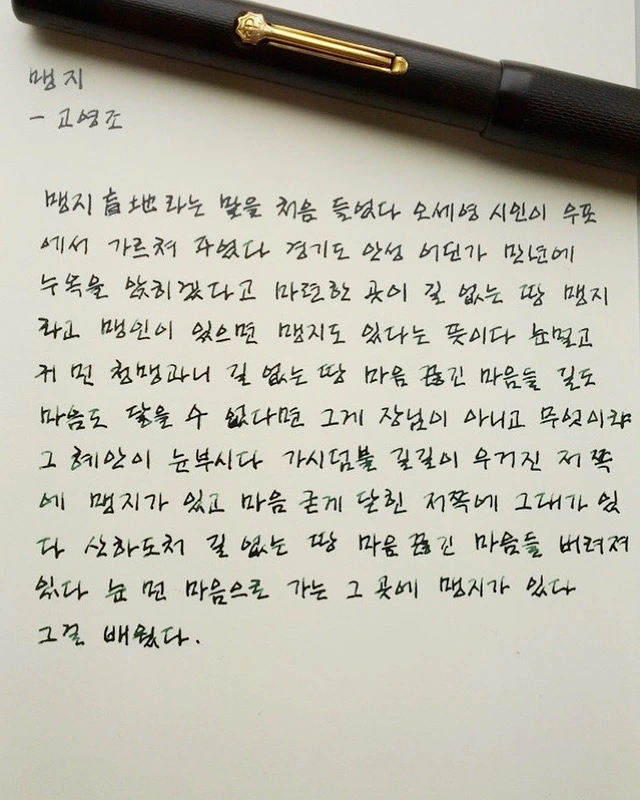 맹지
- 고영조
맹지 盲地 라는 말을 처음 들었다 오세영 시인이 우포
에서 가르쳐 주었다 경기도 안성 어딘가 만년에
누옥을 앉히겠다고 마련한 곳이 길 없는 땅 맹지
라고 맹인이 있으면 맹지도 있다는 뜻이다 눈멀고
귀 먼 청맹과니 길 없는 땅 마음 끊긴 마음들 길도
마음도 닿을 수 없다면 그게 장님이 아니고 무엇이랴
그 혜안이 눈부시다 가시덤불 길길이 우거진 저 쪽
에 맹지가 있고 마음 굳게 닫힌 저쪽에 그대가 있
다 산하도처 길 없는 땅 마음 끊긴 마음들 버려져
있다 눈 먼 마음으로 가는 그 곳에 맹지가 있다
그걸 배웠다.